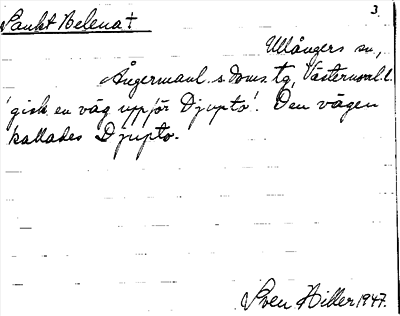 Sankt Helena †
3.
Ullångers sn,
Ångermanl. s. doms. tg, Västernorrl. l.
'gick en väg uppför Djupto'. Den vägen
kallades Djupto.
Sven Hiller 1947.